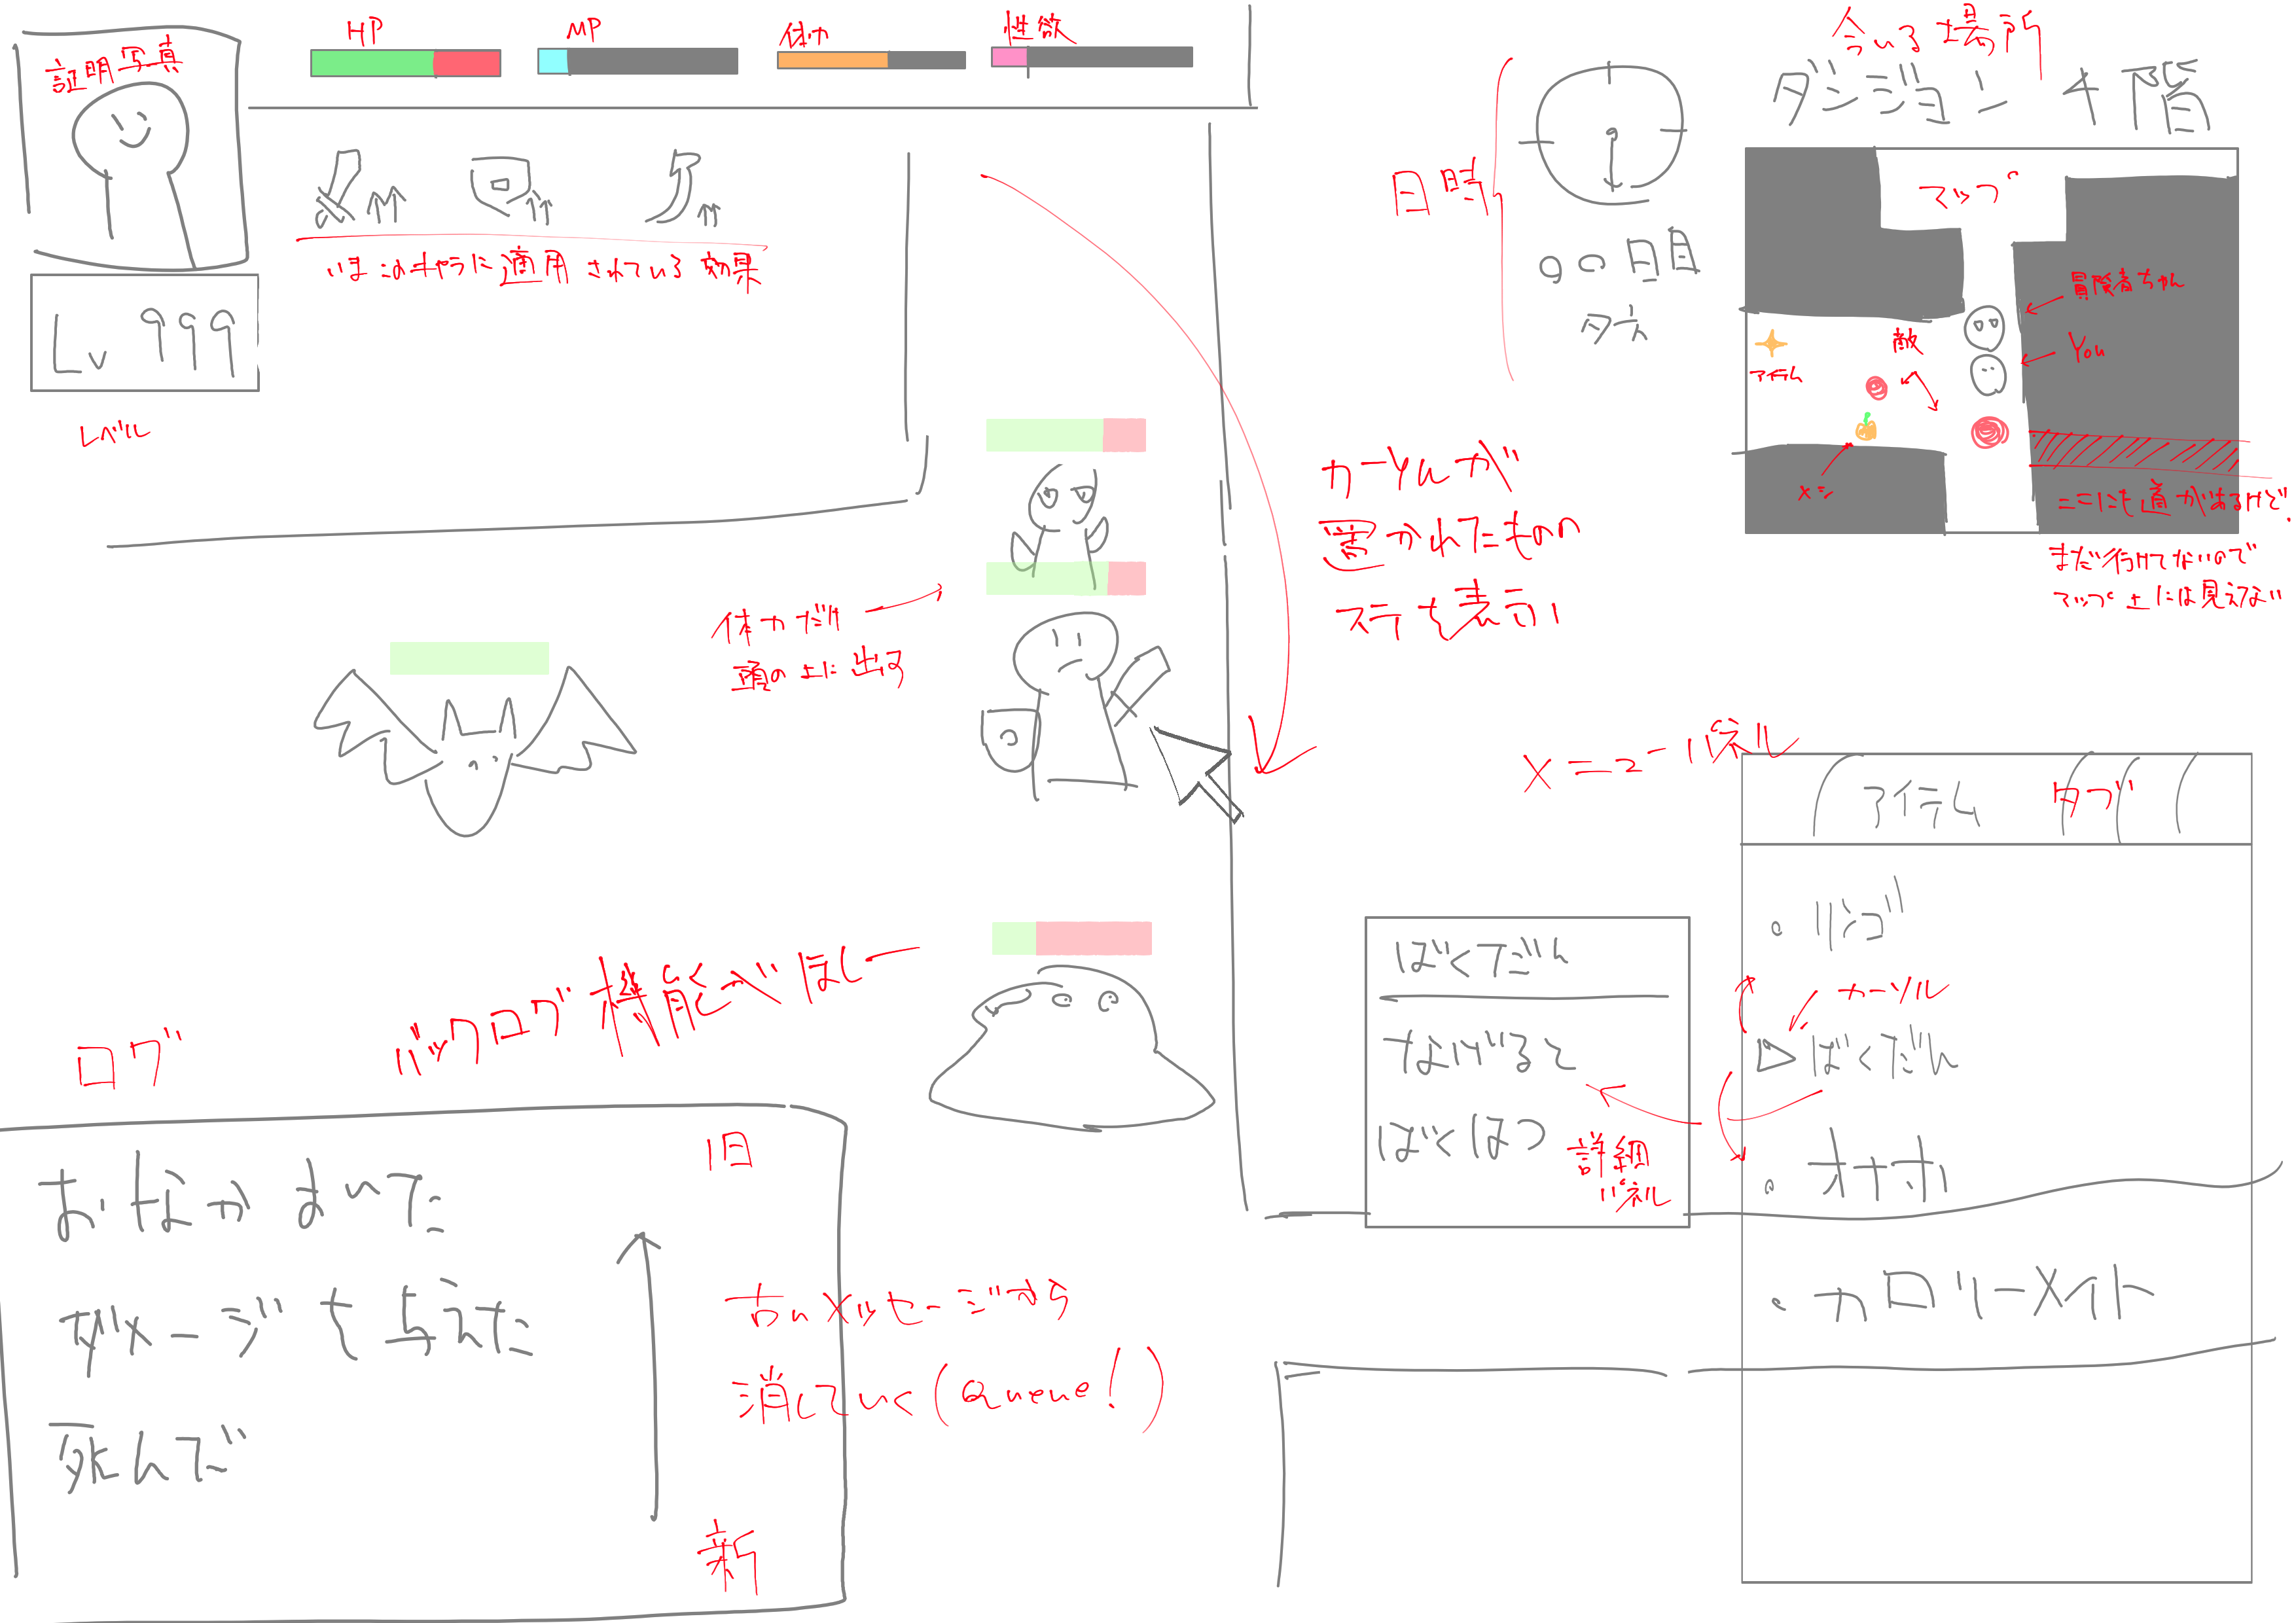 証明写真
HP
MP
体力
性欲
いまこのキャラに適用されている効果
Lv 999
レベル
日時
90日目
夕方
今いる場所
ダンジョン 4階
マップ
冒険者ちゃん
You
敵
アイテム
メシ
ここにも道があるけど
まだ行けてないので
マップ上には見えてない
カーソルが
置かれたものの
ステを表示
体力だけ
頭の上に出る
メニューパネル
アイテム
タブ
・リンゴ
カーソル
▷ばくだん
・オナホ
・カロリーメイト
ばくだん
なげると
ばくはつ
詳細
パネル
ログ
バックログ機能べほしー
おなかすいた
ダメージを与えた
死んだ
旧
新
古いメッセージから
消していく(Queue!)